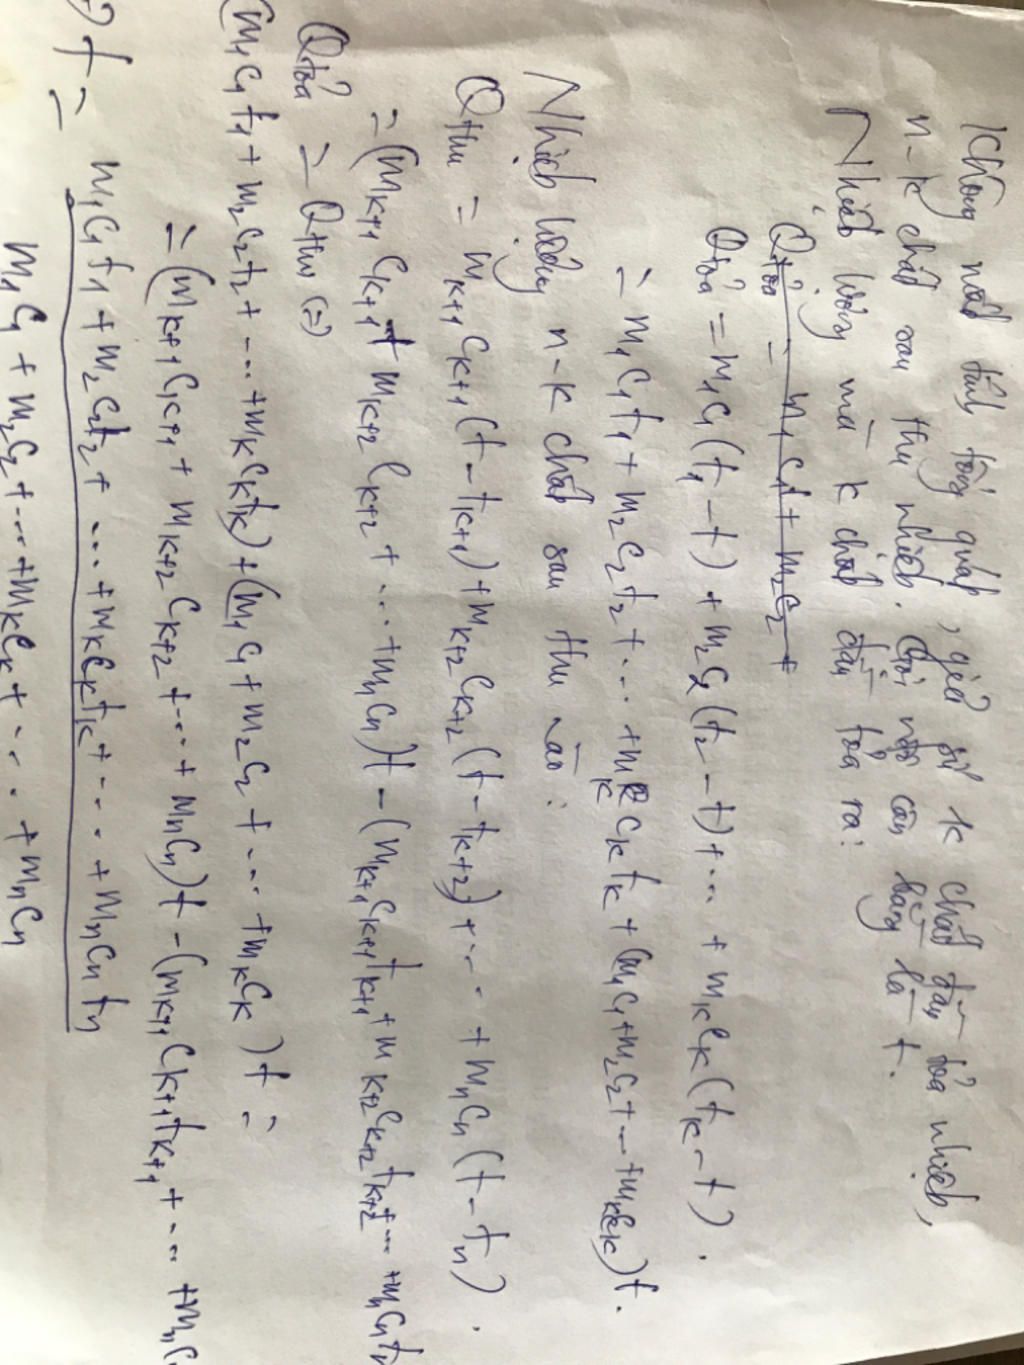 Không mất tính tổng quát, giả sử k chất đầu tỏa nhiệt,
n-k chất sau thu nhiệt. Gọi nđộ cân bằng là t.
Nhiệt lượng mà k chất đầu tỏa ra:
Qtỏa = m₁c₁t + m₂c₂t
Qtỏa = m₁c₁(t₁-t) + m₂c₂(t₂-t) + ... + mₖcₖ(tₖ-t).
= m₁c₁t₁ + m₂c₂t₂ + ... + mₖcₖtₖ + (m₁c₁+m₂c₂+...+mₖcₖ)t.
Nhiệt lượng n-k chất sau thu vào:
Qthu = mₖ₊₁cₖ₊₁(t-tₖ₊₁) + mₖ₊₂cₖ₊₂(t-tₖ₊₂) + ... + mₙcₙ(t-tₙ).
= (mₖ₊₁cₖ₊₁ + mₖ₊₂cₖ₊₂ + ... + mₙcₙ)t - (mₖ₊₁cₖ₊₁tₖ₊₁ + mₖ₊₂cₖ₊₂tₖ₊₂ + ... + mₙcₙtₙ
Qtỏa = Qthu (=)
(m₁c₁t₁ + m₂c₂t₂ + ... + mₖcₖtₖ) + (m₁c₁ + m₂c₂ + ... + mₖcₖ)t =
= (mₖ₊₁cₖ₊₁ + mₖ₊₂cₖ₊₂ + ... + mₙcₙ)t - (mₖ₊₁cₖ₊₁tₖ₊₁ + ... + mₙc
=) t = m₁c₁t₁ + m₂c₂t₂ + ... + mₖcₖtₖ + ... + mₙcₙtₙ
m₁c₁ + m₂c₂ + ... + mₖcₖ + ... + mₙcₙ